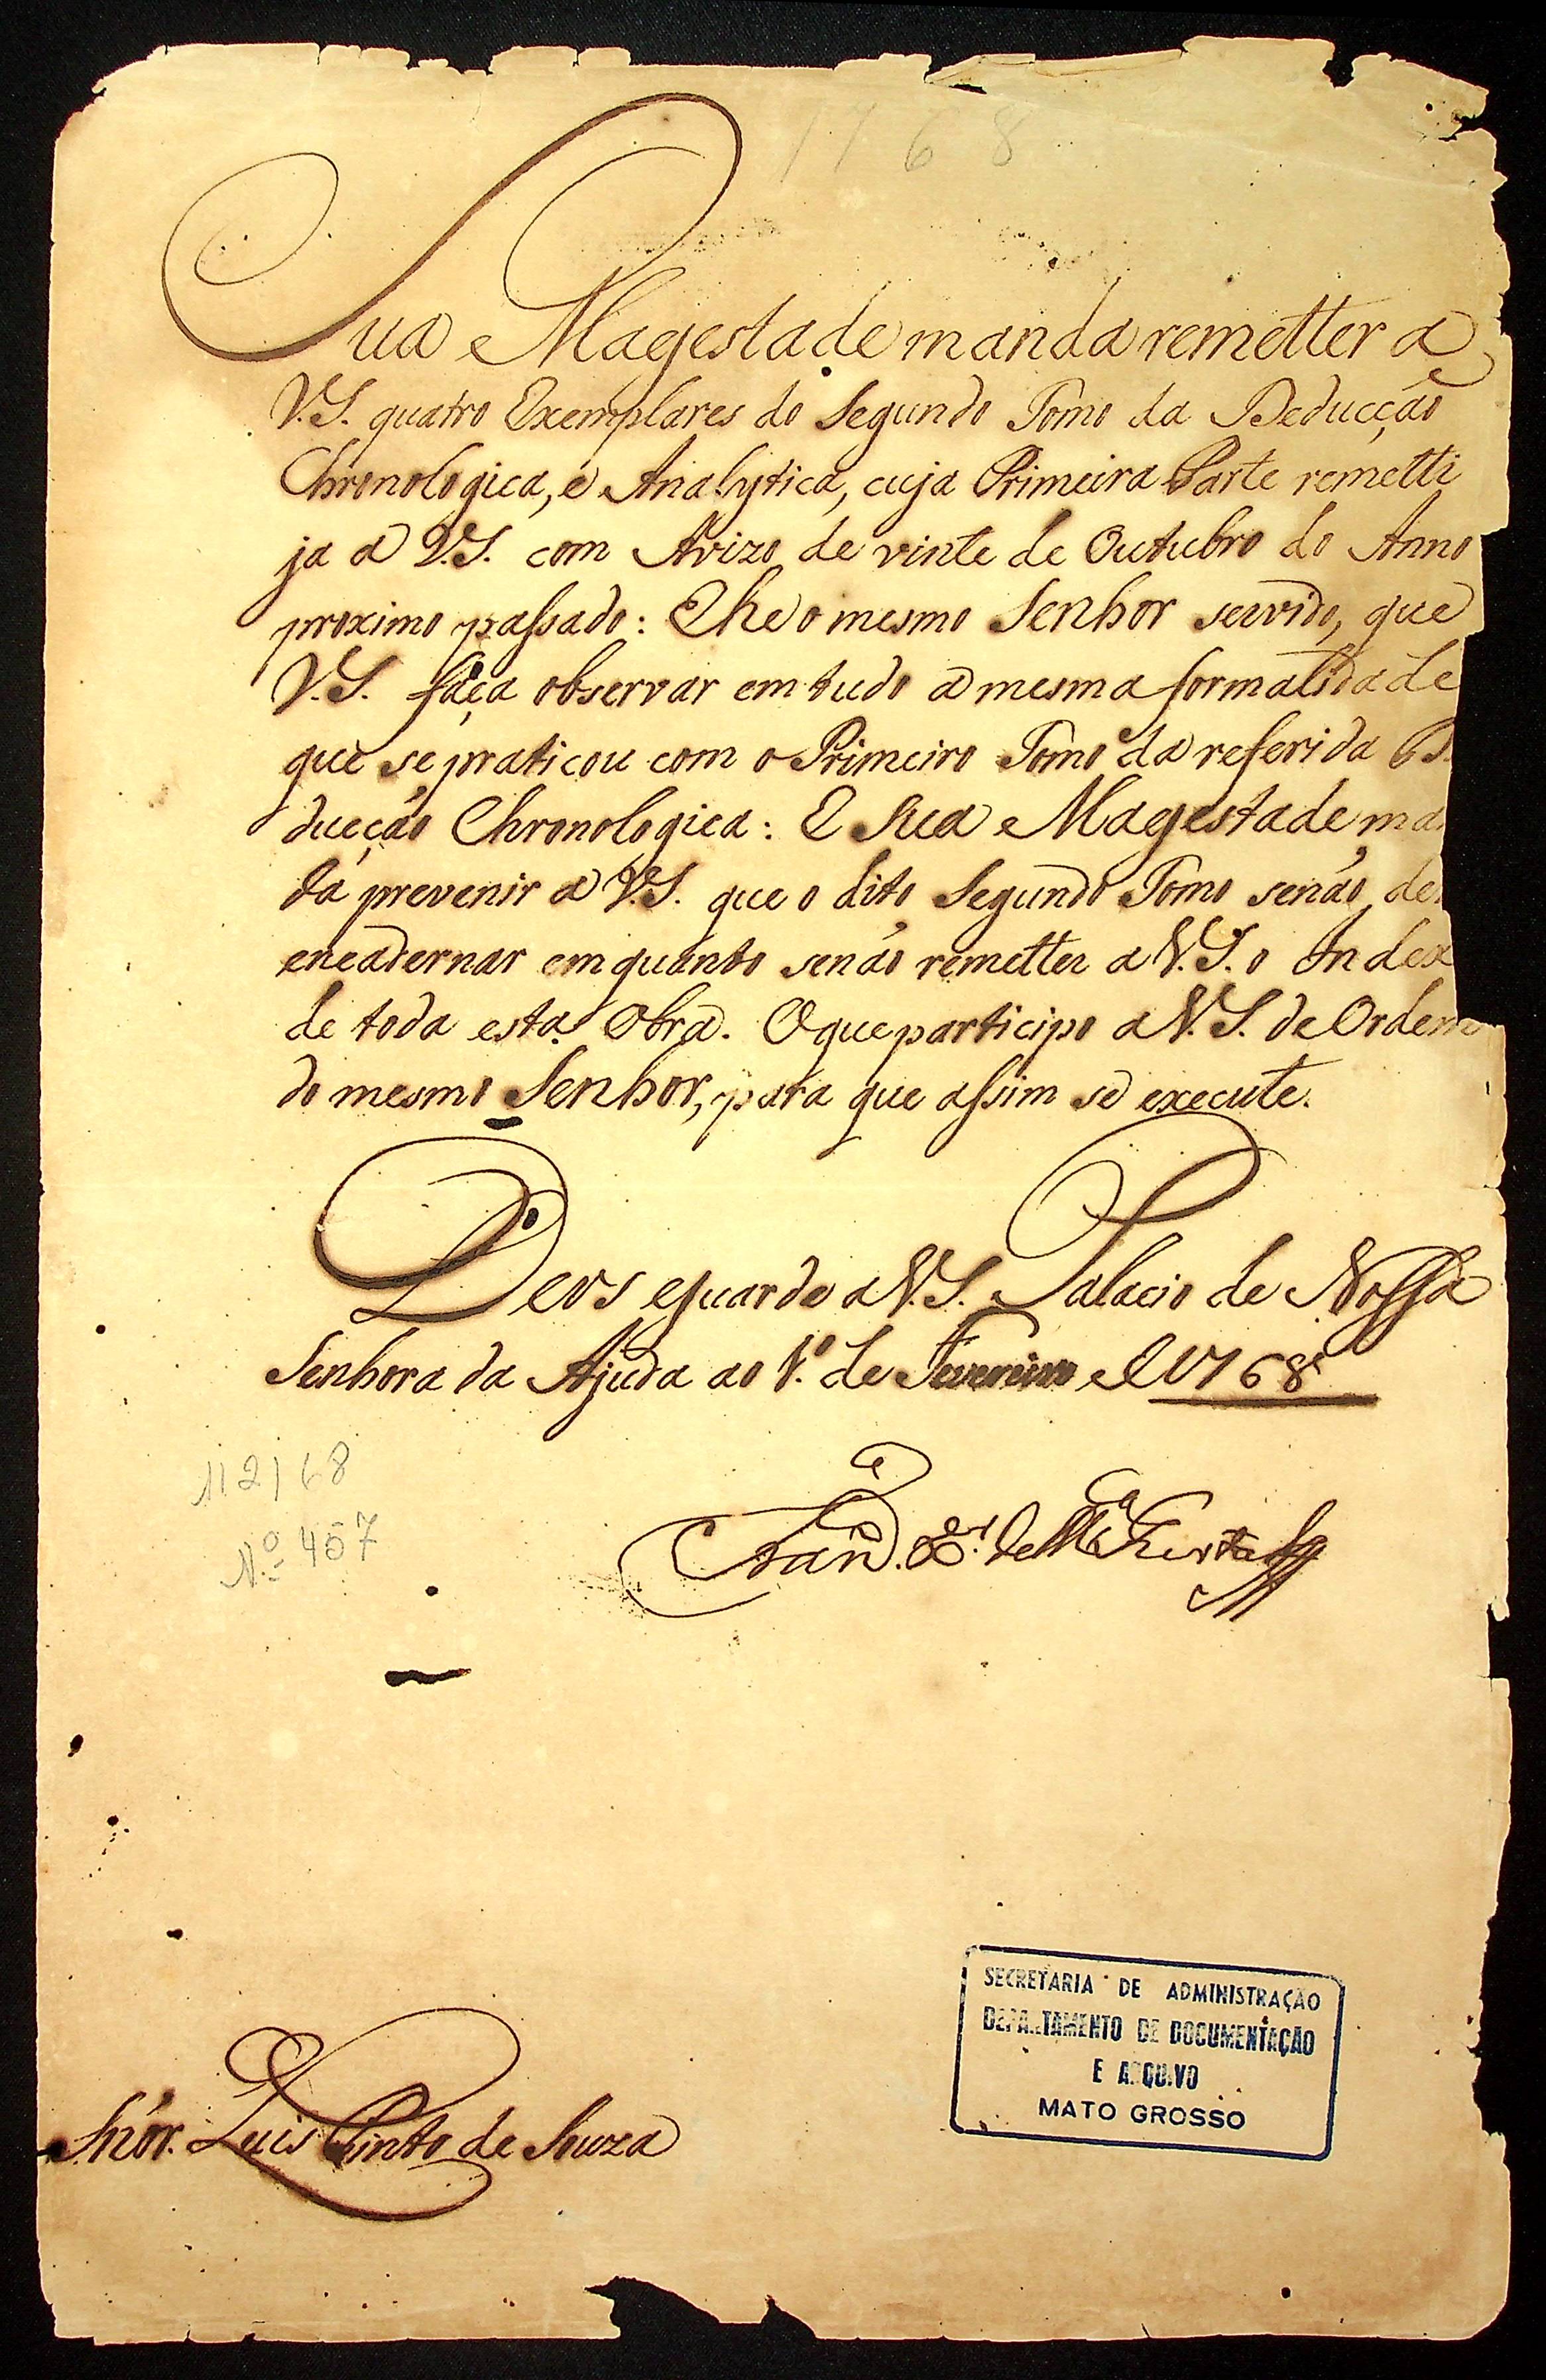 1768
Sua Magestade manda remetter a
V.S. quatro Exemplares do Segundo Tomo da Deducção
Chronologica, e Analytica, cuja Primeira Parte remetti
ja a V.S. com Avizo de vinte de Outubro do Anno
proximo passado: E he o mesmo Senhor servido, que
V.S. faça observar em tudo a mesma formalidade
que se praticou com o Primeiro Tomo da referida
ducção Chronologica: E Sua Magestade ma
da prevenir a V.S. que o dito Segundo Tomo senão de
encadernar em quanto senão remetter a V.S. o Index
de toda esta Obra. O que participo a V.S. de Ordem
do mesmo Senhor, para que assim se execute.
Deos guarde a V.S. Palacio de Nossa
Senhora da Ajuda ao 1.º de Fevereiro de 1768
112168
N.º 457
Fran. X.er de M.ça Furtado
Snõr. Luis Pinto de Souza
SECRETARIA DE ADMINISTRAÇÃO
DEPARTAMENTO DE DOCUMENTAÇÃO
E ARQUIVO
MATO GROSSO